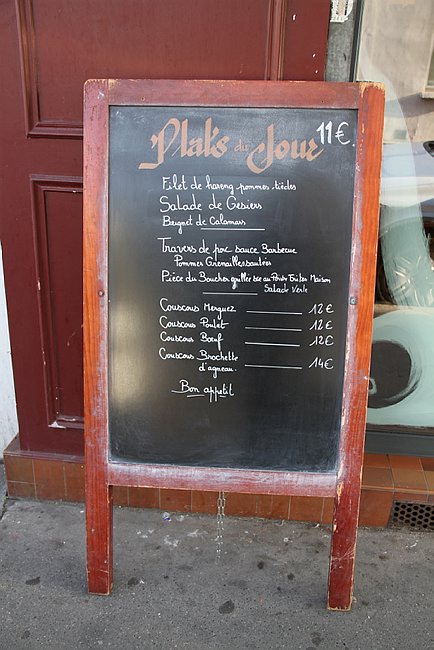 Plats du Jour 11€
Filet de hareng pommes tièdes
Salade de Gesiers
Beignet de Calamars
Travers de porc sauce Barbecue
Pommes Grenailles sautées
Pièce du Boucher griller sce au Poivre Frites Maison
Salade Verte
Couscous Merguez 12€
Couscous Poulet 12€
Couscous Bœuf 12€
Couscous Brochette 14€
d'agneau
Bon appetit